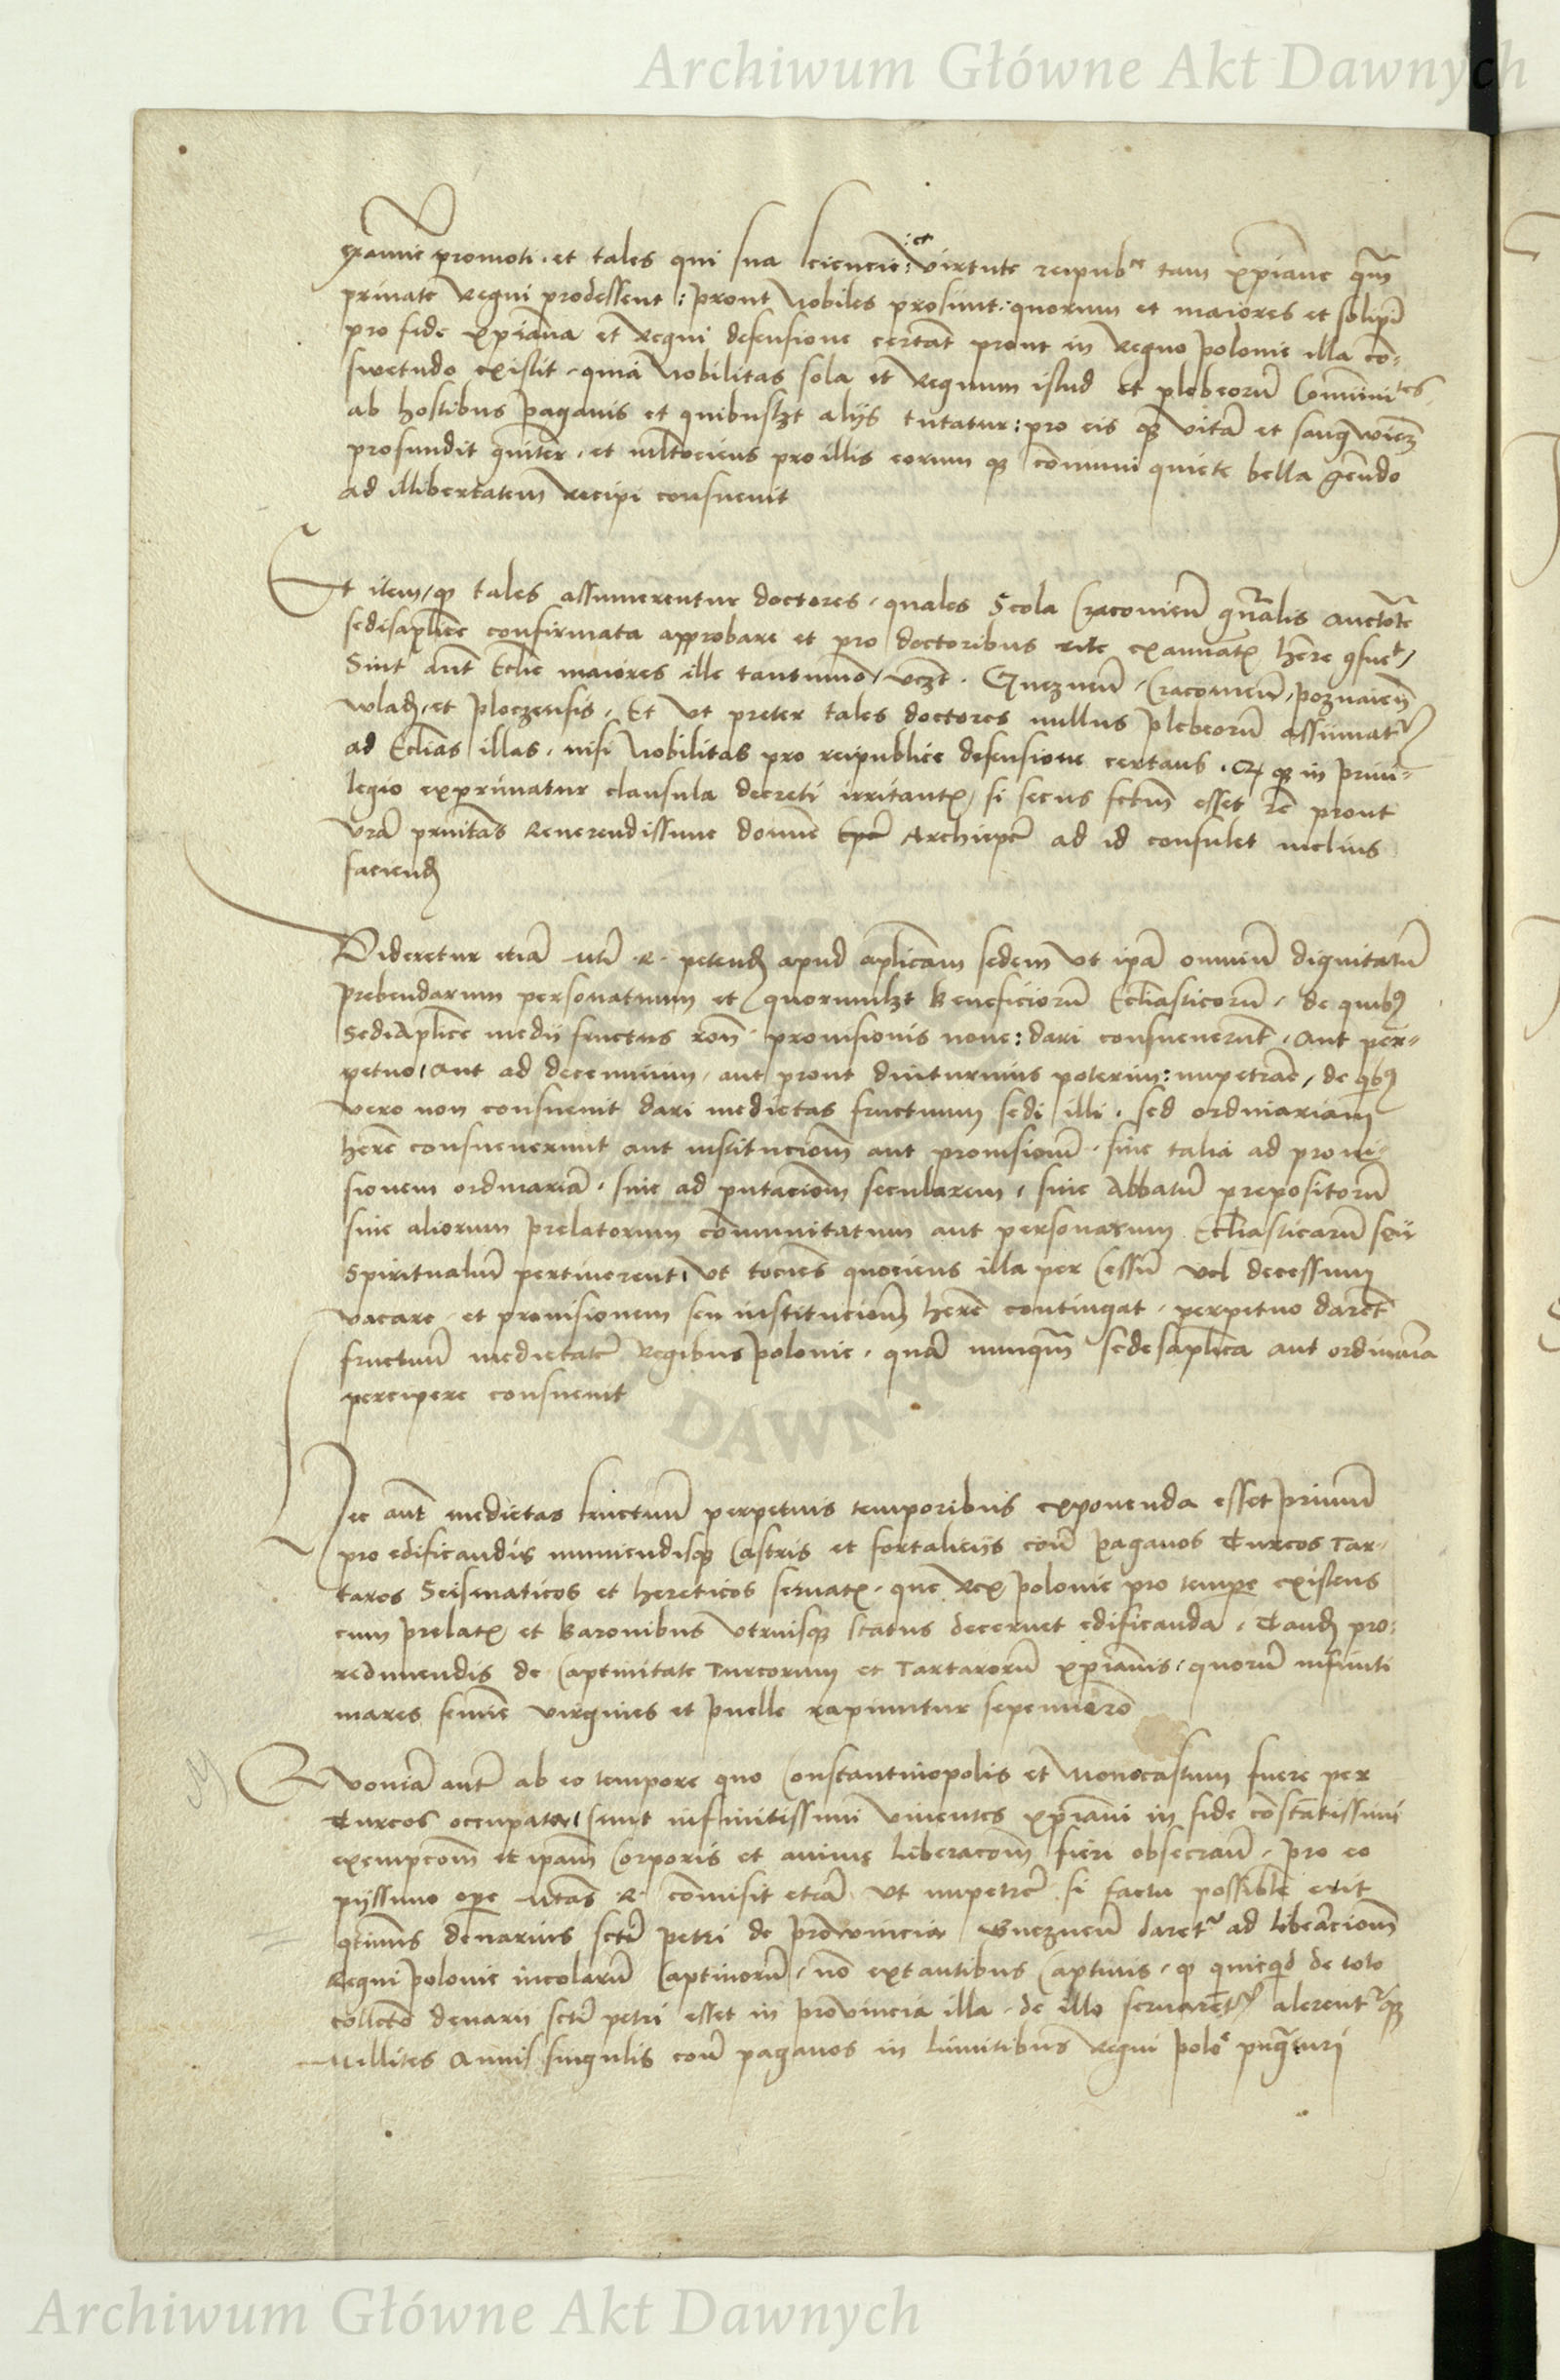 Archiwum Główne Akt Dawnych
promoti . et tales qui sua sciencie : et virtute reipub^ce tam xpiane qm̄
private Regni prodessent : prout Nobiles prosunt : quorum et maiores et
pro fide xpiana et Regni defensione certāt prout in Regno polonie illa co-
swetudo existit . quia Nobilitas sola et Regnum istud et plebeorū Comunitˢ
ab hostibus paganis et quibusl3t alijs tutatur : pro eis q3 vitā et
profundit . et pro illis eorum q3 comuni quiete bella gerēdo
ad illibertatem recipi consuevit
Et item / q tales assumerentur doctores . quales Scola Cracovieñ gñralis auctote
sedisaplice confirmata approbare et pro doctoribus rite
Sint aut Eclie maiores ille tantumo / vcz̄t . Gnezneñ . Cracovieñ . poznanieñ
wladꝫ . et ploczensis . Et ut preter tales doctores nullus plebeorū assumat^r
ad Eclias illas . nisi Nobilitas pro reipublice defensione certans . q3 in privi-
legio exprimatur clausula decreti irritantꝭ / si secus fctm̄ esset prout
vrā Reverendissime domine Archiepē ad id consulet melius
faciendꝫ
Videretur etiā . R . petendꝫ apud aplicam sedem ut ipā omniū dignitatū
prebendarum personatuum et quorumlz̄t Beneficiorū Ecliasticorū . de quibꝫ
Sediaplice medii fructus provisionis nove : dari consueverūt . aut per-
petuo / aut ad decennium . aut prout diuturnius poterim : impetrare / de qibꝫ
vero non consuevit dari medietas fructuum sedi illi . sed ordinariam
here consueverunt aut institucionē aut provisionē . sive talia ad provi-
sionem ordinariā . sive ad secularem . sive Abbatū prepositorū
sive aliorum prelatorum comunitatum aut personarum Ecliasticarū seu
Spiritualiū pertinerent / ut tociens quociens illa per Cessū vel decessum
vacare . et provisionem seu institucionē here contingat . perpetuo
fructuū medietatē Regibus polonie . quā nunqm̄ sedesaplica aut ordinaria
percipere consuevit
Hec aut medietas fructuū perpetuis temporibus exponenda esset primū
pro edificandis muniendisq3 Castris et fortalicijs cont paganos Turcos Tar-
taros Scismaticos et hereticos . que Rex polonie pro tempe existens
cum prelatꝭ et Baronibus utriusq3 status decernet edificanda . Tandꝫ pro :
redimendis de Captivitate Turcorum et Tartarorū xpianis . quorū infiniti
mares femine virgines et puelle rapiuntur sepenumero
Quoniā autē ab eo tempore quo Constantinopolis et Monocastrum fuere per
Turcos occupata / sunt infinitissimi viventes xpiani in fide constātissimi
exempcōm et ipam Corporis et anime liberacōm fieri . pro eo
pijssimo ope . R . comisit etiā ut impetrēt si factu possibile erit
denarius scti petri de provincia Gnezneñ daret^r ad liberacionē
Regni polonie incolarū Captivorū . no extantibus Captivis . q quicqd de toto
collecto denarii scti petri esset in provincia illa . de illo servaret^r alerent^rq3
Milites Annis singulis cont paganos in limitibus Regni polo^e pugnaturi
Archiwum Główne Akt Dawnych